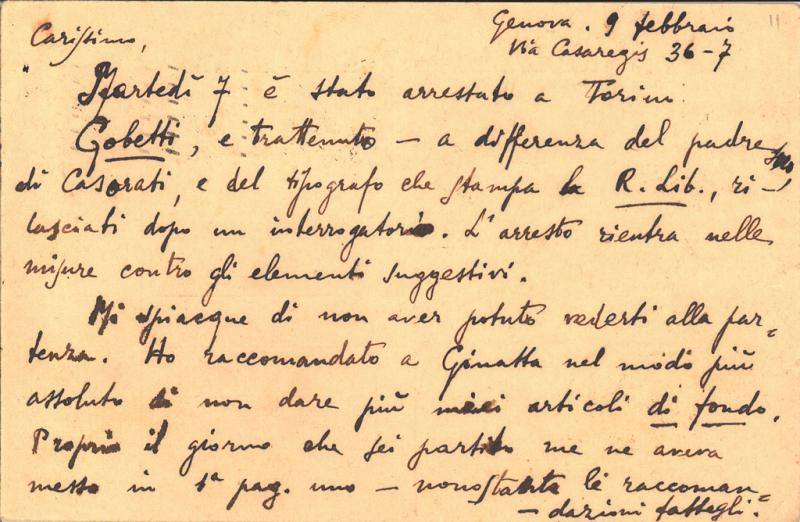 11
Genova. 9 febbraio
Via Casaregis 36-7
Carissimo,
Martedì 7 è stato arrestato a Torino
Gobetti, e trattenuto — a differenza del padre suo,
di Casorati, e del tipografo che stampa la R. Lib., ri-
lasciati dopo un interrogatorio. L'arresto rientra nelle
misure contro gli elementi suggestivi.
Mi spiacque di non aver potuto vederti alla par=
tenza. Ho raccomandato a Ginatta nel modo più
assoluto di non dare più miei articoli di fondo.
Proprio il giorno che sei partito me ne aveva
messo in 1ª pag. uno — nonostante le raccoman=
— dazioni fattegli.